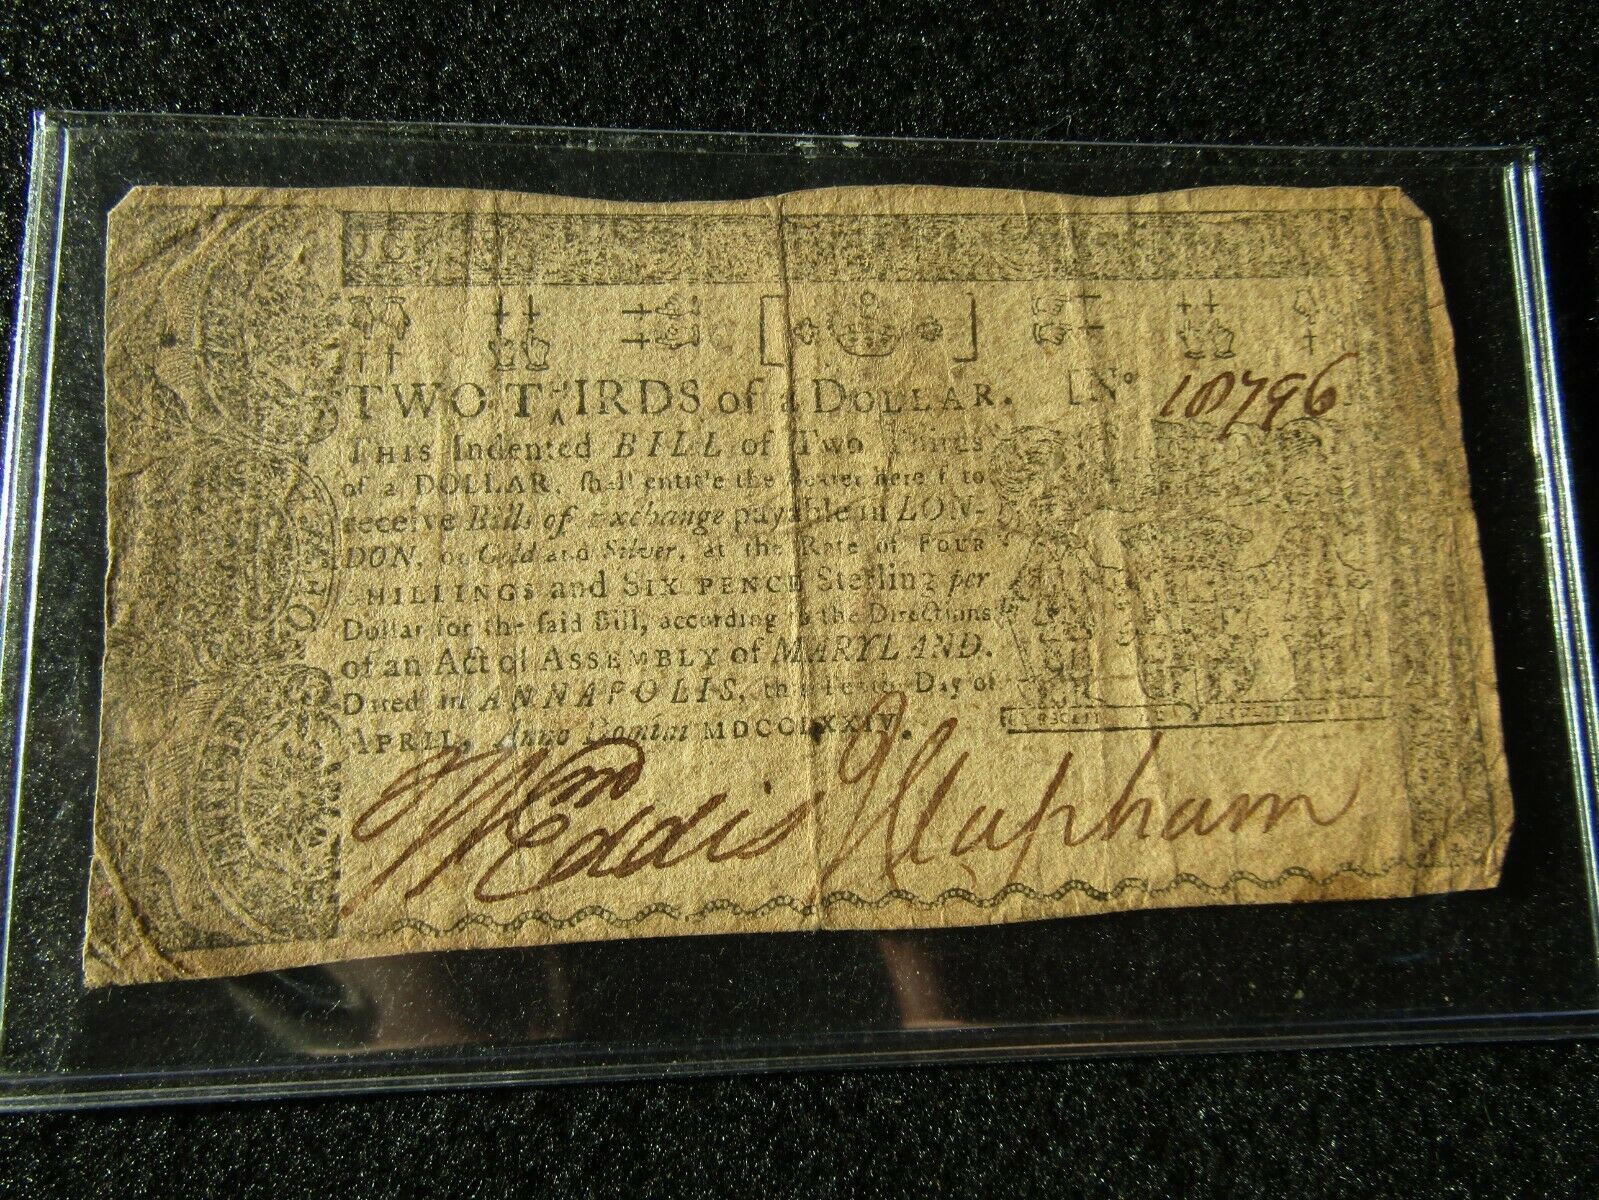 TWO THIRDS of a DOLLAR. [No 18796
THIS Indented BILL of Two Thirds
of a DOLLAR, shall entitle the to
receive Bills of Exchange payable in LON-
DON, or Gold and Silver, at the Rate of FOUR
SHILLINGS and SIX PENCE Sterling per
Dollar for the said Bill, according to the Directions
of an Act of ASSEMBLY of MARYLAND.
Dated in ANNAPOLIS, this Day of
APRIL, Anno Domini MDCCLXXIV.
Wm Eddis J Clapham